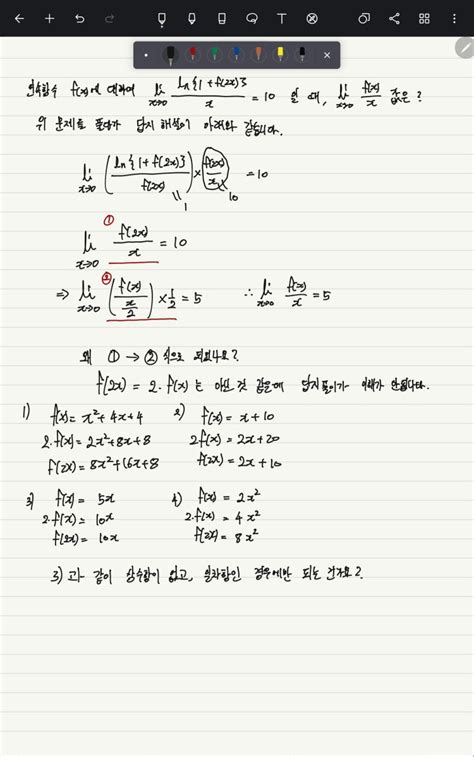 연속함수 f(x)에 대하여 lim x→0 ln{1+f(2x)} / x = 10 일 때, lim x→0 f(x)/x 값은?
위 문제를 풀다가 답지 해설이 아래와 같습니다.
lim x→0 ( ln{1+f(2x)} / f(2x) ) × ( f(2x) / x ) = 10
1 10
①
lim x→0 f(2x)/x = 10
②
⇒ lim x→0 ( f(x) / (x/2) ) × 1/2 = 5 ∴ lim x→0 f(x)/x = 5
왜 ① → ② 식으로 되나요?
f(2x) = 2·f(x)는 아닌 것 같은데 답지풀이가 이해가 안됩니다.
1) f(x) = x²+4x+4
2·f(x) = 2x²+8x+8
f(2x) = 8x²+16x+8
2) f(x) = x+10
2·f(x) = 2x+20
f(2x) = 2x+10
3) f(x) = 5x
2·f(x) = 10x
f(2x) = 10x
4) f(x) = 2x²
2·f(x) = 4x²
f(2x) = 8x²
3) 과 같이 상수항이 없고, 일차항인 경우에만 되는 건가요?